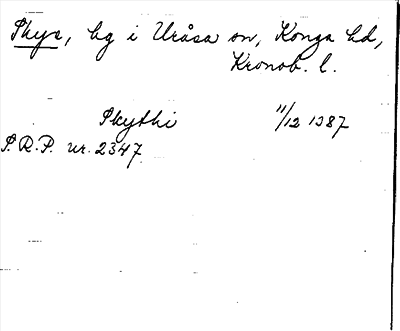 Skye, by i Uråsa sn, Konga hd,
Kronob. l.
Skythi 11/12 1387
S.R.P. nr. 2347